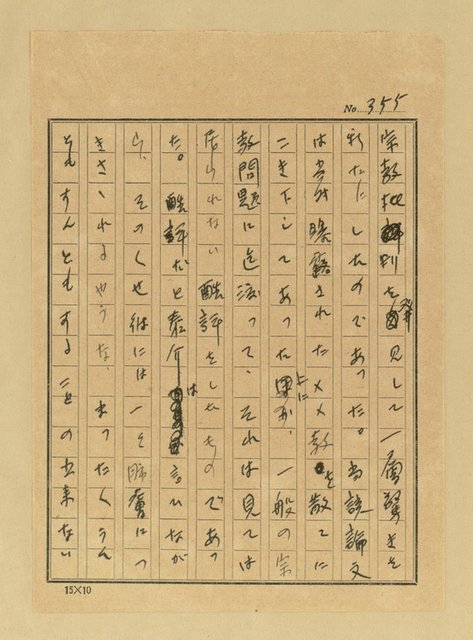 No. 355
宗教批判を発見して一層驚きを
新たにしたのであつた。当該論文
は当時曝露された××教を散々に
こき下してあつた上に、一般の宗
教問題に迄渡つて、それは見ては
居られない酷評をしたものであつ
た。酷評だと泰介は言ひなが
ら、そのくせ彼には一々肺腑につ
きさゝれるやうな、まつたくうん
ともすんともする ことの出来ない
15×10